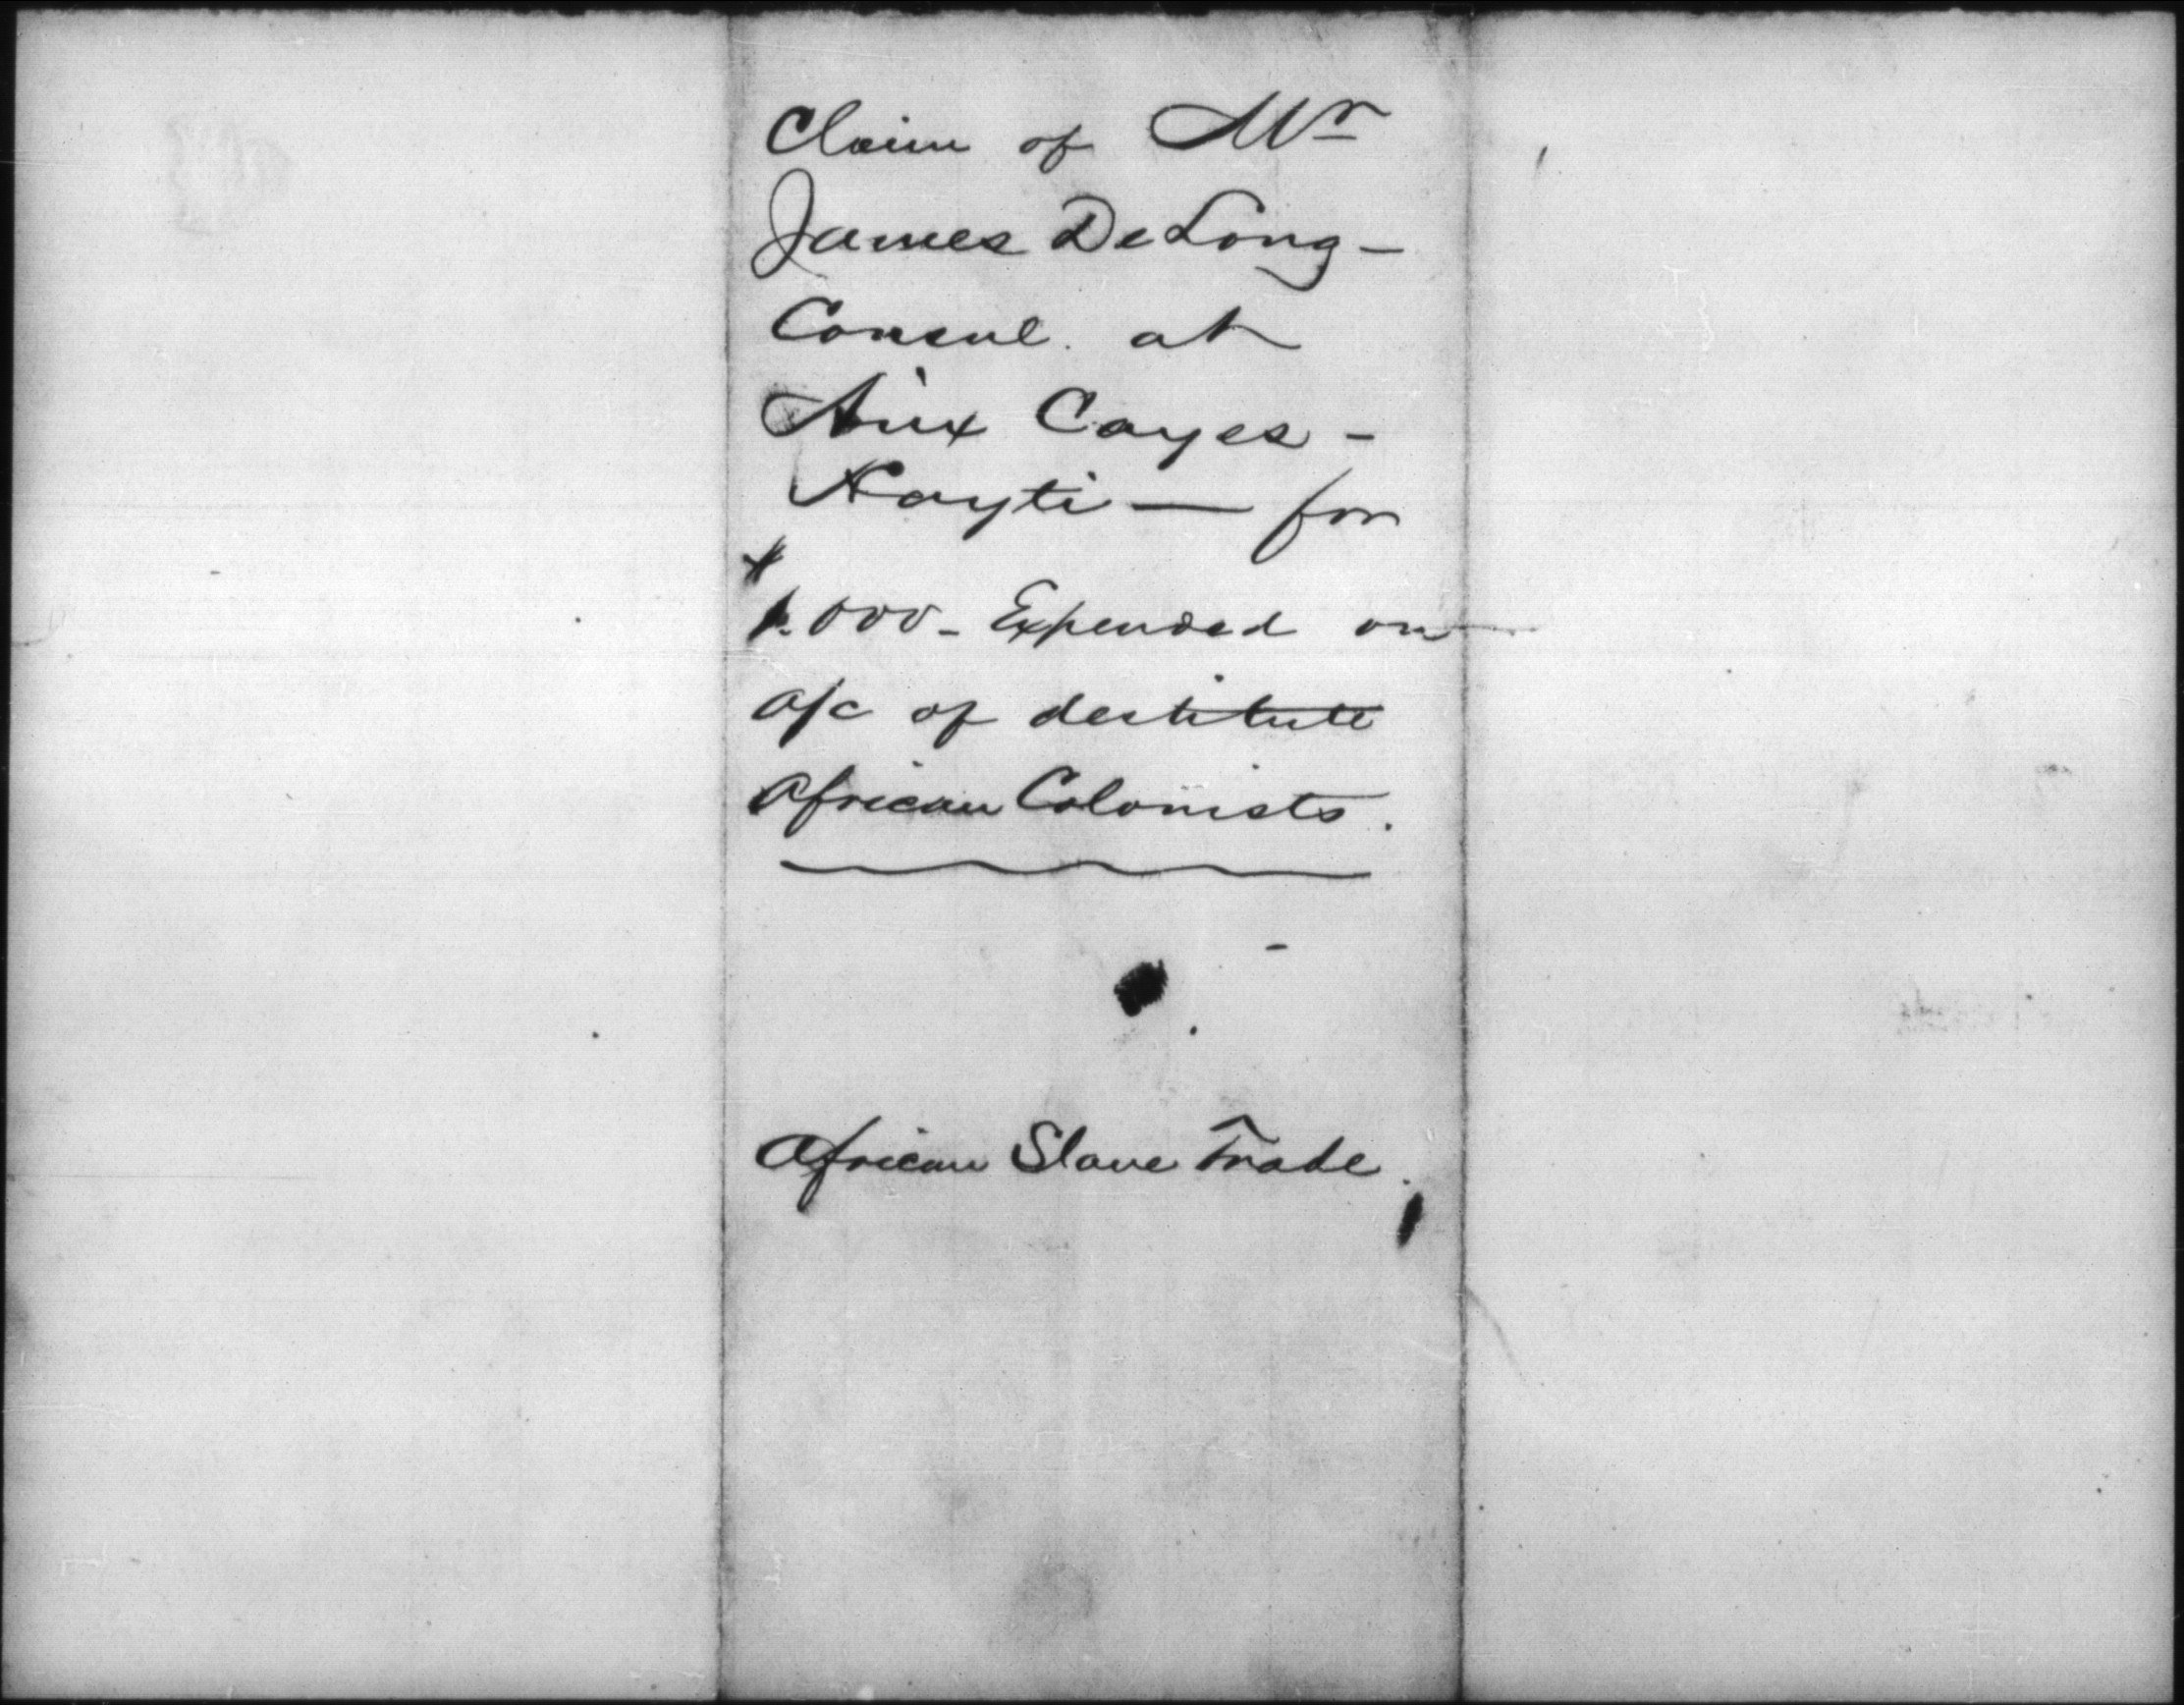 Claim of Mr
James DeLong -
Consul. at
Aux Cayes -
Hayti — for
$
1.000 - Expended on
a/c of destitute
African Colonists.
African Slave Trade.